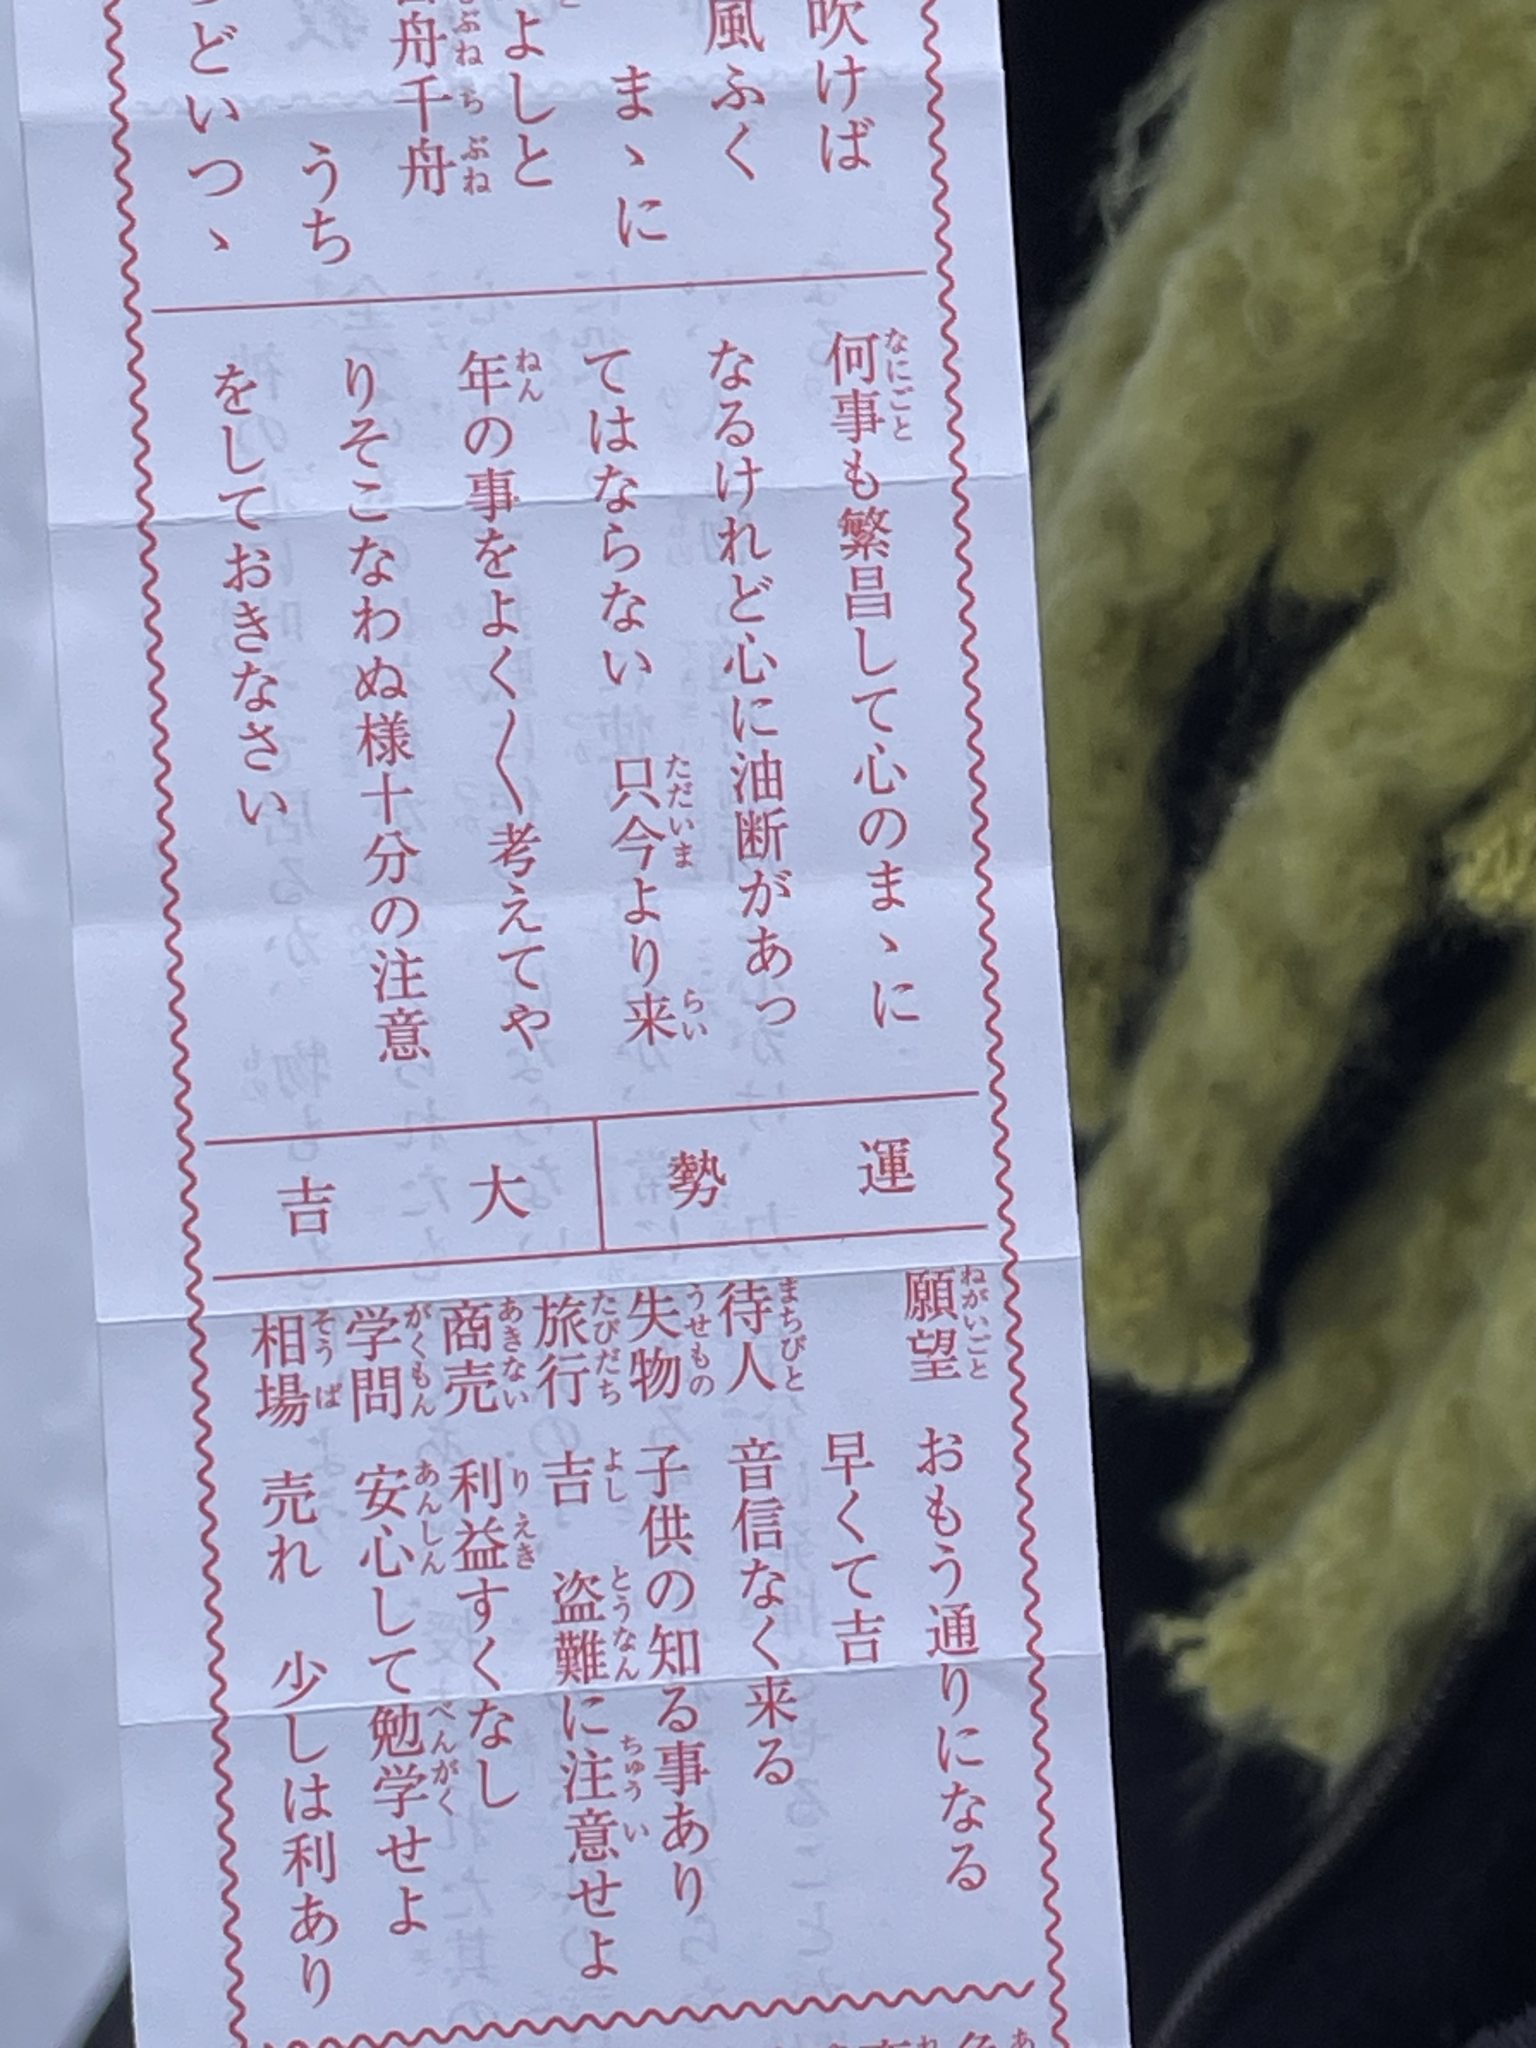 吹けば
風ふく
まゝに
よしと
舟千舟
うち
どいつゝ
何事も繁昌して心のまゝに
なるけれど心に油断があっ
てはならない 只今より来
年の事をよく〳〵考えてや
りそこなわぬ様十分の注意
をしておきなさい
運勢
大吉
願望 おもう通りになる
早くて吉
待人 音信なく来る
失物 子供の知る事あり
旅行 吉 盗難に注意せよ
商売 利益すくなし
学問 安心して勉学せよ
相場 売れ 少しは利あり